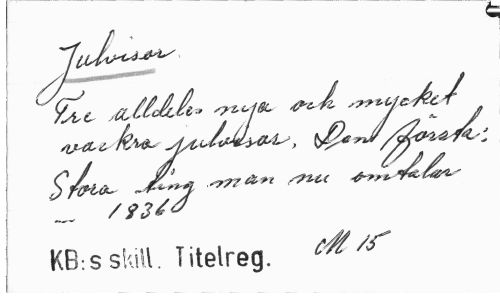 Julvisor.
Tre alldeles nya och mycket
vackra julvisor. Den första:
Stora ting man nu omtalar
— 1836
KB:s skill. Titelreg.
M 15